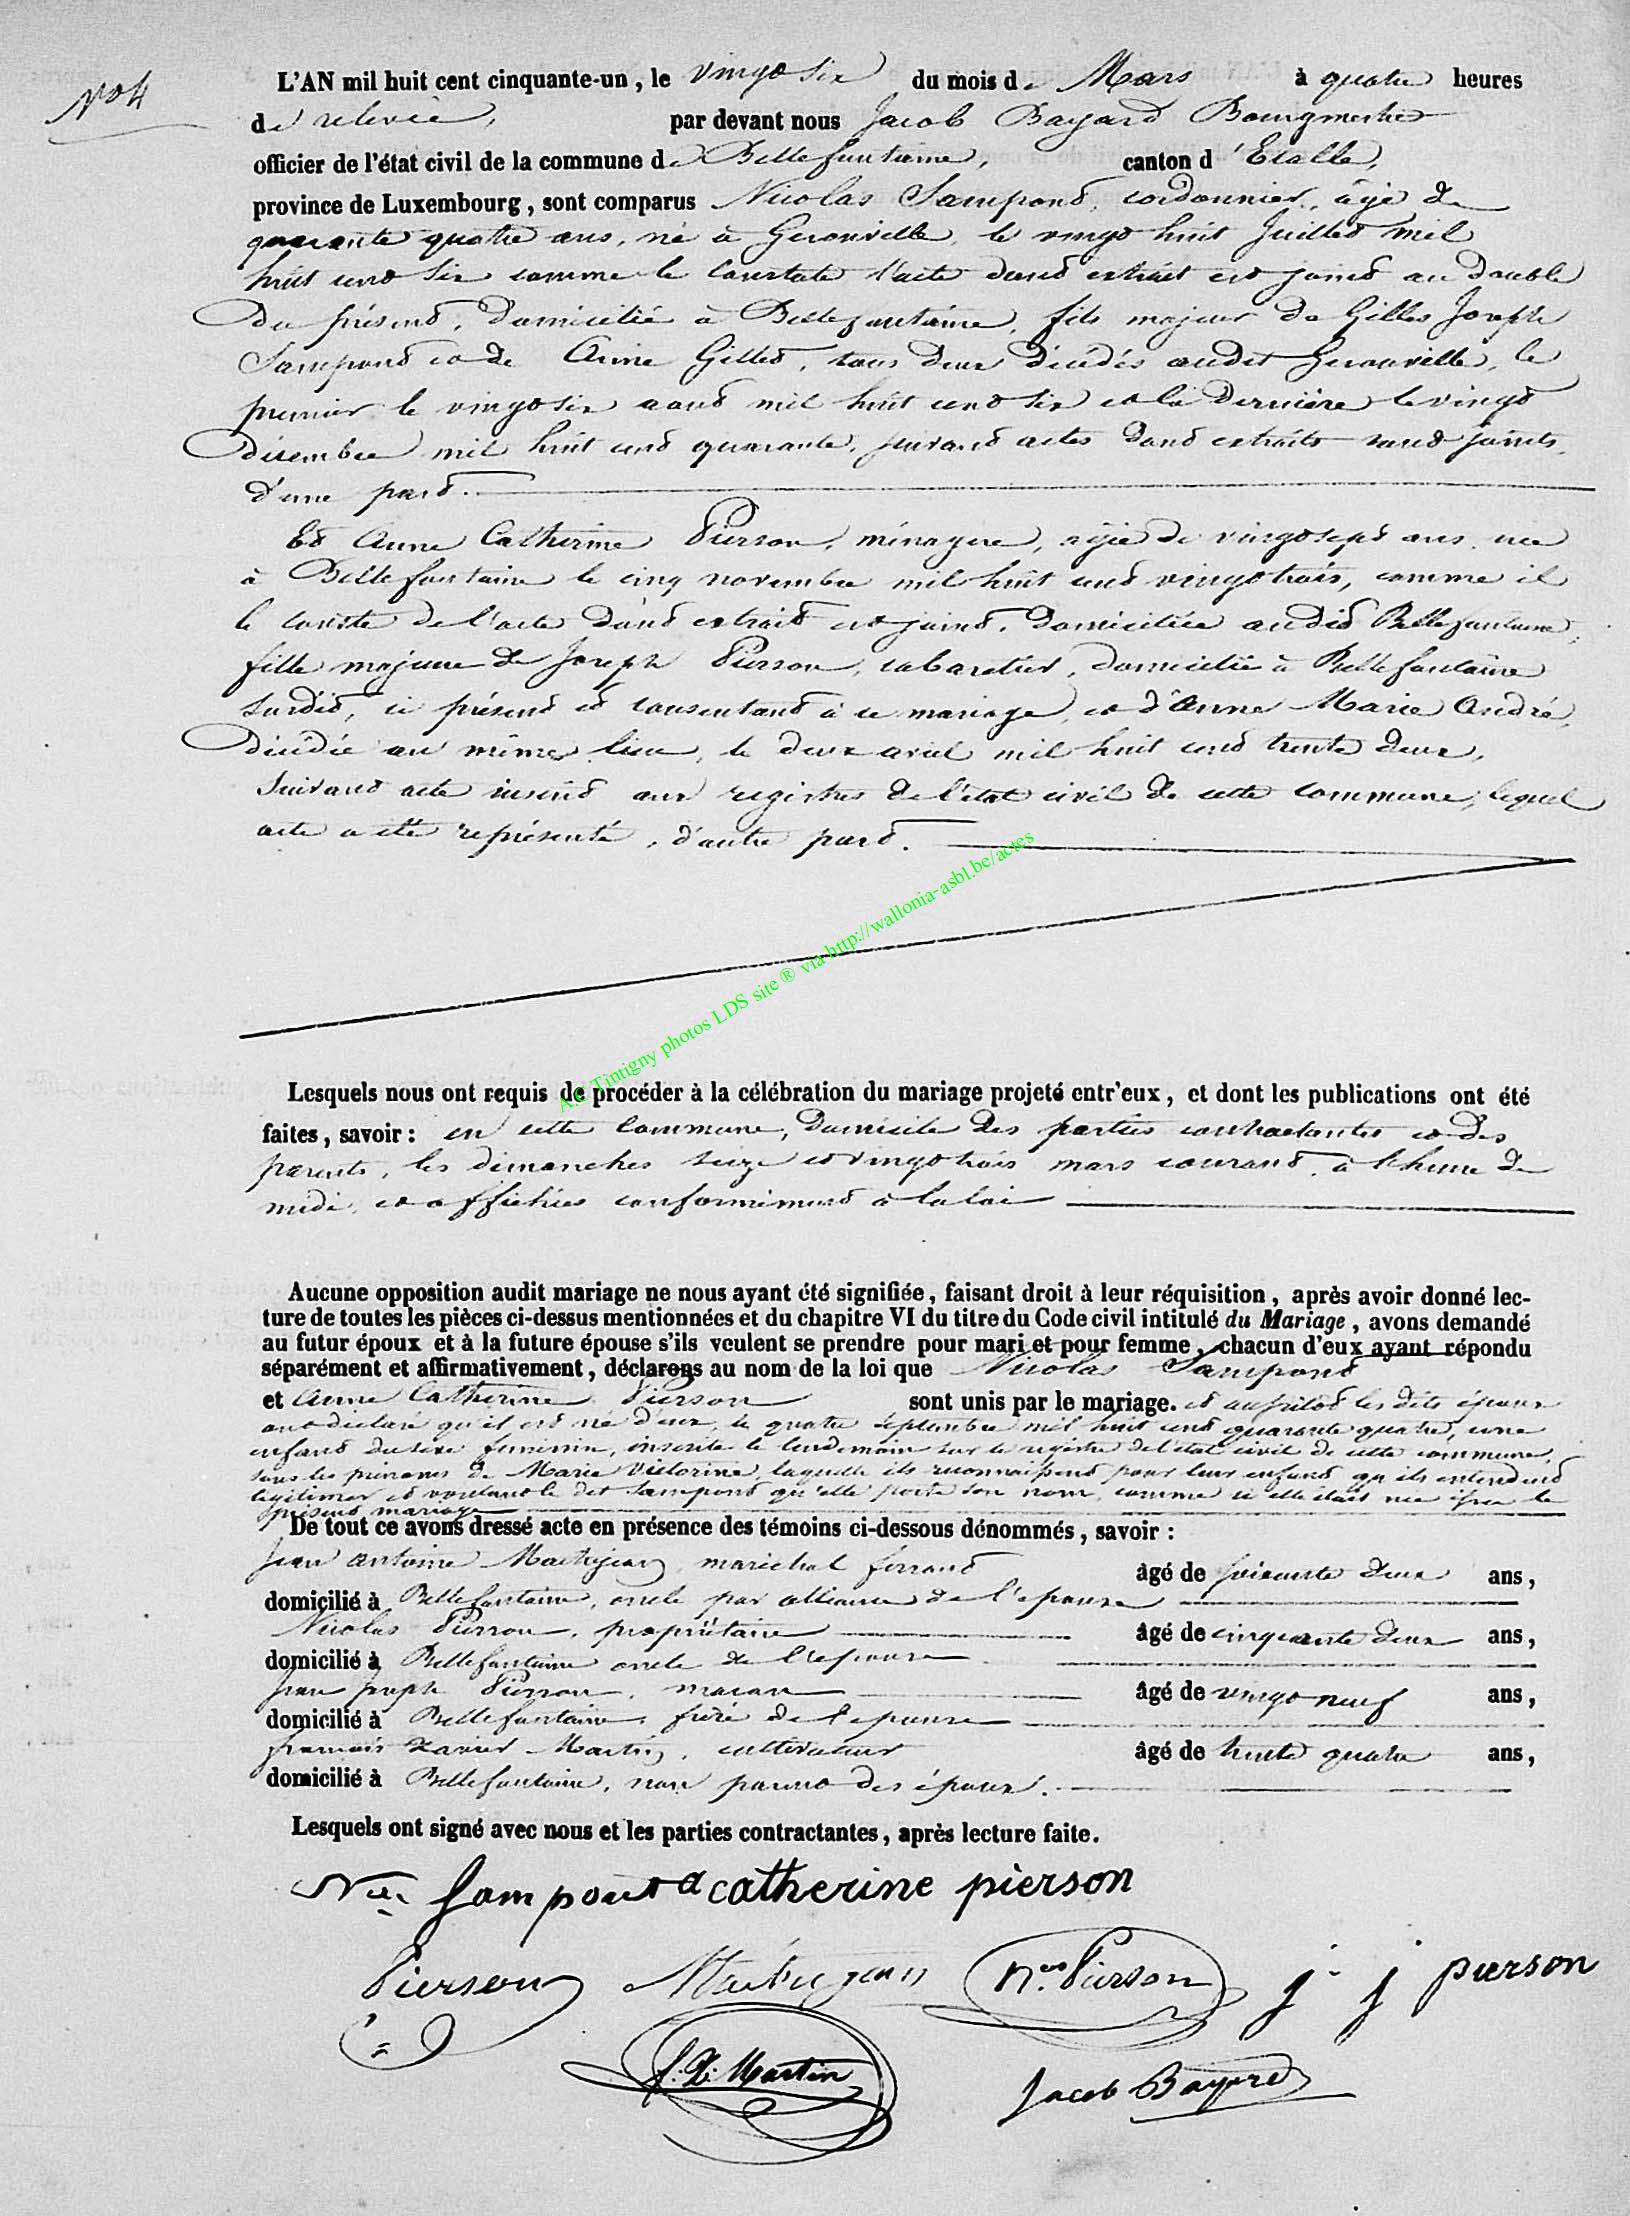 N° 4
L'AN mil huit cent cinquante-un, le vingt six du mois de Mars à quatre heures
de relevée, par devant nous Jacob Bayard Bourgmestre
officier de l'état civil de la commune de Bellefontaine, canton d'Etalle,
province de Luxembourg, sont comparus Nicolas Sampont, cordonnier, âgé de
quarante quatre ans, né à Gerouville, le vingt huit Juillet mil
huit cent six comme le constate l'acte dont extrait est joint au double
du présent, domicilié à Bellefontaine, fils majeur de Gilles Joseph
Sampont et de Anne Gillet, tous deux décédés audit Gerouville, le
premier le vingt six aout mil huit cent six et la dernière le vingt
décembre mil huit cent quarante, suivant actes dont extraits sont joints,
d'une part.
Et Anne Catherine Pierson, ménagère, agée de vingt sept ans, née
à Bellefontaine le cinq novembre mil huit cent vingt trois, comme il
le conste de l'acte dont extrait est joint, domiciliée audit Bellefontaine,
fille majeure de Joseph Pierson, cabaretier, domicilié à Bellefontaine
susdit, ici présent et consentant à ce mariage, et d'Anne Marie André,
décédée au même lieu, le deux avril mil huit cent trente deux,
suivant acte inscrit aux registres de l'état civil de cette commune, lequel
acte a été représenté, d'autre part.
A.C Tintigny photos LDS site ® via http://wallonia-asbl.be/actes
Lesquels nous ont requis de procéder à la célébration du mariage projeté entr'eux, et dont les publications ont été
faites, savoir: en cette commune, domicile des parties contractantes et des
parents, les dimanches seize et vingt trois mars courant, à l'heure de
midi, et affichées conformément à la loi
Aucune opposition audit mariage ne nous ayant été signifiée, faisant droit à leur réquisition, après avoir donné lec-
ture de toutes les pièces ci-dessus mentionnées et du chapitre VI du titre du Code civil intitulé du Mariage, avons demandé
au futur époux et à la future épouse s'ils veulent se prendre pour mari et pour femme, chacun d'eux ayant répondu
séparément et affirmativement, déclarons au nom de la loi que Nicolas Sampont
et Anne Catherine Pierson sont unis par le mariage. et aussitot les dits époux
ont déclaré qu'il est né d'eux, le quatre septembre mil huit cent quarante quatre, une
enfant du sexe feminin, inscrite le lendemain sur le registre de l'état civil de cette commune,
sous les prénoms de Marie Victorine, laquelle ils reconnaissent pour leur enfant qu'ils entendent
légitimer et voulant le dit Sampont qu'elle porte son nom, comme si elle était née issue de
présent mariage
De tout ce avons dressé acte en présence des témoins ci-dessous dénommés, savoir:
Jean Antoine Maitrejean, maréchal ferrant âgé de soixante deux ans,
domicilié à Bellefontaine, oncle par alliance de l'épouse
Nicolas Pierson, propriétaire âgé de cinquante deux ans,
domicilié à Bellefontaine oncle de l'épouse
Jean Joseph Pierson, macon âgé de vingt neuf ans,
domicilié à Bellefontaine, frère de l'épouse
françois Xavier Martin, cultivateur âgé de trente quatre ans,
domicilié à Bellefontaine, non parent des époux.
Lesquels ont signé avec nous et les parties contractantes, après lecture faite.
Nas Sampont a catherine pierson
Pierson Maitrejean Nas Pierson j j pierson
f. X. Martin Jacob Bayard